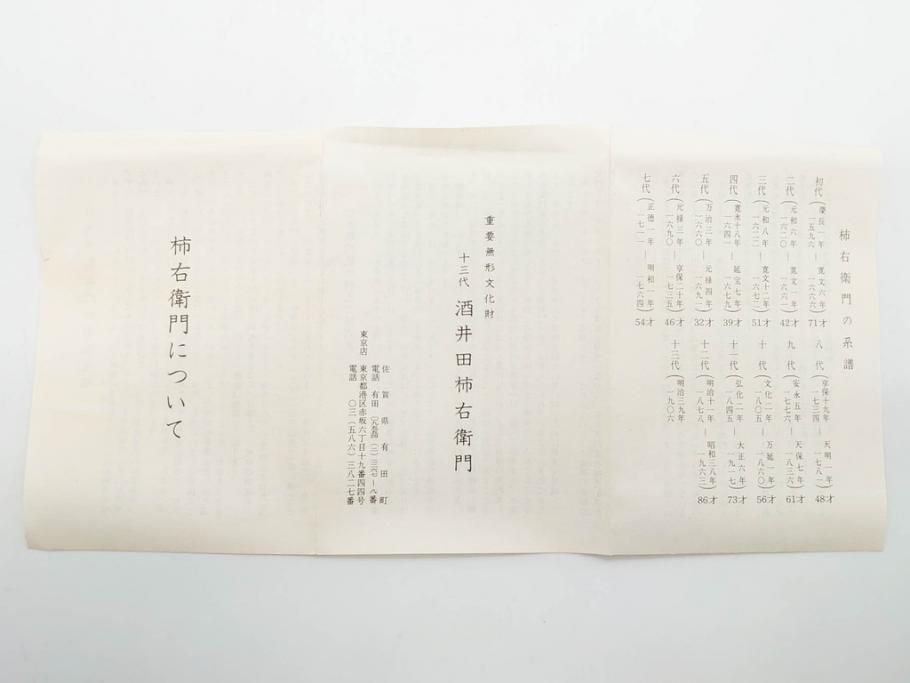 柿右衛門の系譜
初代(慶長一年 一五九六―寛文六年 一六六六)71才
二代(元和六年 一六二〇―寛文一年 一六六一)42才
三代(元和八年 一六二二―寛文十二年 一六七二)51才
四代(寛永十八年 一六四一―延宝七年 一六七九)39才
五代(万治三年 一六六〇―元禄四年 一六九一)32才
六代(元禄三年 一六九〇―享保二十年 一七三五)46才
七代(正徳一年 一七一一―明和一年 一七六四)54才
八代(享保十九年 一七三四―天明一年 一七八一)48才
九代(安永五年 一七七六―天保七年 一八三六)61才
十代(文化二年 一八〇五―万延一年 一八六〇)56才
十一代(弘化二年 一八四五―大正六年 一九一七)73才
十二代(明治十一年 一八七八―昭和三八年 一九六三)86才
十三代(明治三九年 一九〇六
重要無形文化財
十三代 酒井田柿右衛門
佐賀県有田町
電話 有田
東京店 東京都港区赤坂六丁目十九番四四号
電話 〇三(五八六)三八二七番
柿右衛門について